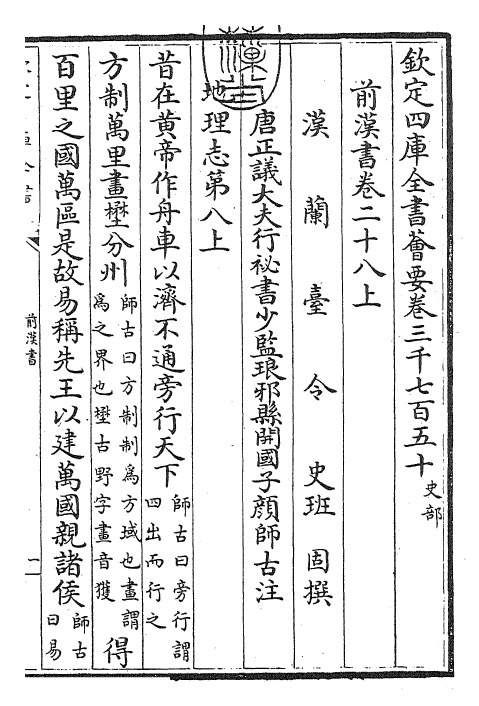 欽定四庫全書薈要卷三千七百五十 史部
前漢書卷二十八上
漢蘭臺令史班固撰
唐正議大夫行祕書少監琅邪縣開國子顔師古注
地理志第八上
昔在黄帝作舟車以濟不通旁行天下 師古曰旁行謂四出而行之
方制萬里畫壄分州 師古曰方制制為方域也畫謂為之界也壄古野字畫音獲 得
百里之國萬區是故易稱先王以建萬國親諸侯 師古曰易
前漢書
一